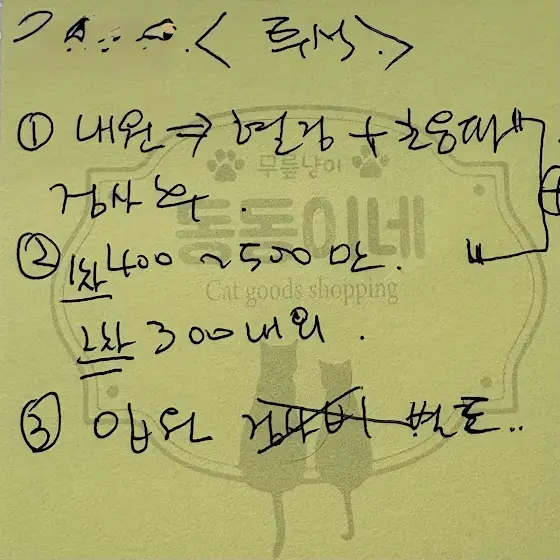 ① 내원 → 혈검 + 초음파
검사 후.
② 1차 400 ~ 500만.
2차 300내외.
③ 입원 검사비 별도..
무릎냥이
똥똥이네
Cat goods shopping